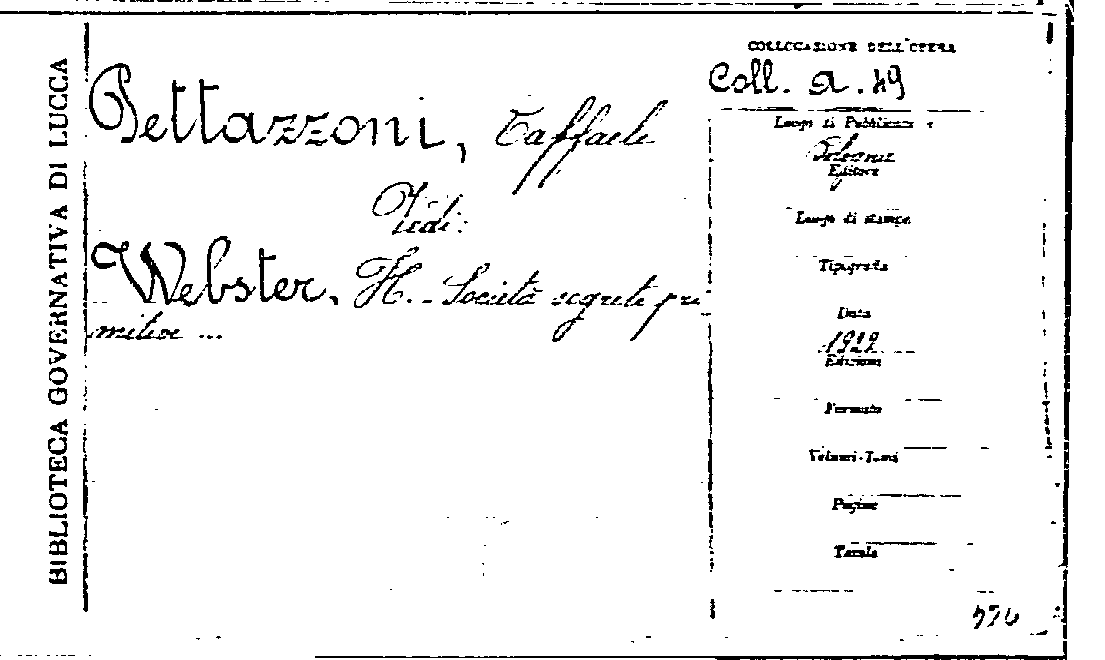 BIBLIOTECA GOVERNATIVA DI LUCCA
Pettazzoni, Raffaele
Vedi:
Webster, H. - Società segrete pri
mitive ...
COLLOCAZIONE DELL'OPERA
Coll. A. 49
Luogo di Pubblicaz.
Bologna
Editore
Luogo di stampa
Tipografia
Data
1922
Edizione
Formato
Volumi-Tomi
Pagine
Tavole